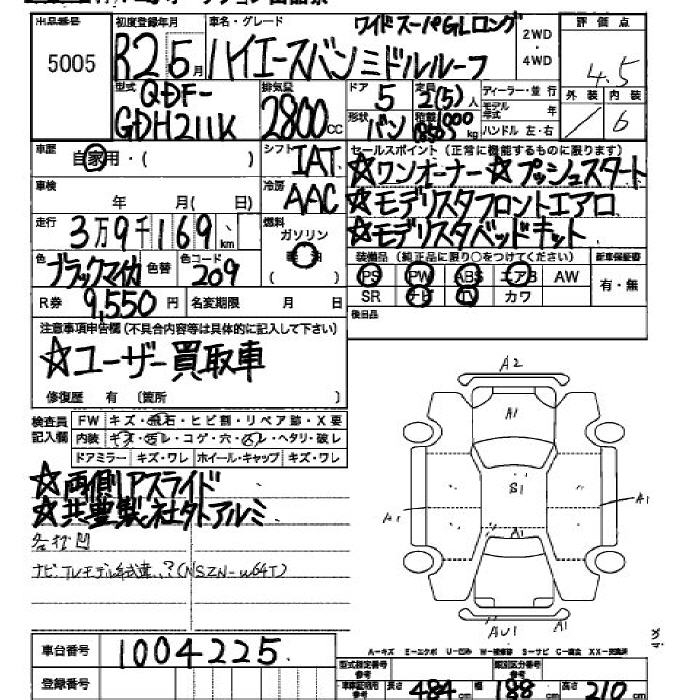 出品番号
5005
初度登録年月
R2 5月
車名・グレード
ワイドスーパーGLロング
ハイエースバンミドルルーフ
2WD
・
4WD
評価点
4.5
外装 内装
6
型式
QDF-
GDH211K
排気量
2800cc
ドア
5
定員
2(5)人
形状
バン
積載
kg
ディーラー・並行
モデル年式 年
ハンドル 左・右
車歴
自家用・( )
シフト
IAT
セールスポイント(正常に機能するものに限ります)
☆ワンオーナー☆プッシュスタート
☆モデリスタフロントエアロ
☆モデリスタベッドキット
車検
年 月( 日)
冷房
AAC
走行
3万9千169km
燃料
ガソリン
( )
色
ブラックマイカ
色替
色コード
209
装備品(純正品に限り○をつけてください)
PS PW ABS エアB AW
SR ナビ TV カワ
新車保証書
有・無
R券 9,550円
名変期限 月 日
後日品
注意事項申告欄(不具合内容等は具体的に記入して下さい)
☆ユーザー買取車
修復歴 有 〔箇所 〕
検査員記入欄
FW キズ・飛石・ヒビ割・リペア跡・X要
内装 キズ・汚レ・コゲ・穴・ ・ヘタリ・破レ
ドアミラー キズ・ワレ ホイール・キャップ キズ・ワレ
☆両側Pスライド
☆共豊製社外アルミ
各招凹
ナビTVモデル (NSZN-W64T)
A2
A1
S1
A1
A1
A1
AU1
A-キズ E-エクボ U-凹み W-補修跡 S-サビ C-腐食 XX-交換済
車台番号
1004225
登録番号
型式指定番号 参考
類別区分番号 参考
車庫証明用 参考
長さ 484cm
幅 188cm
高さ 210